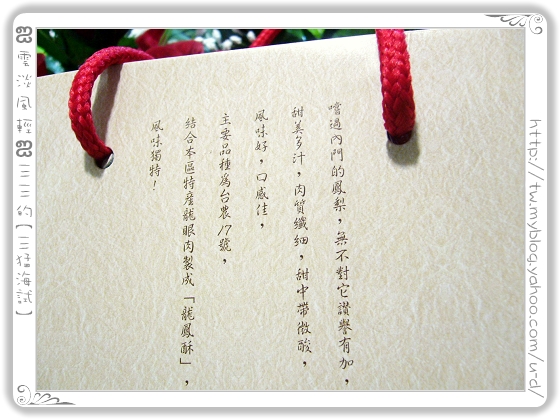 嚐過內門的鳳梨，無不對它讚譽有加，
甜美多汁，肉質纖細，甜中帶微酸，
風味好，口感佳，
主要品種為台農17號，
結合本區特產龍眼肉製成「龍鳳酥」，
風味獨特！
雲淡風輕 三三的【三猛海試】
http://tw.myblog.yahoo.com/u-d/